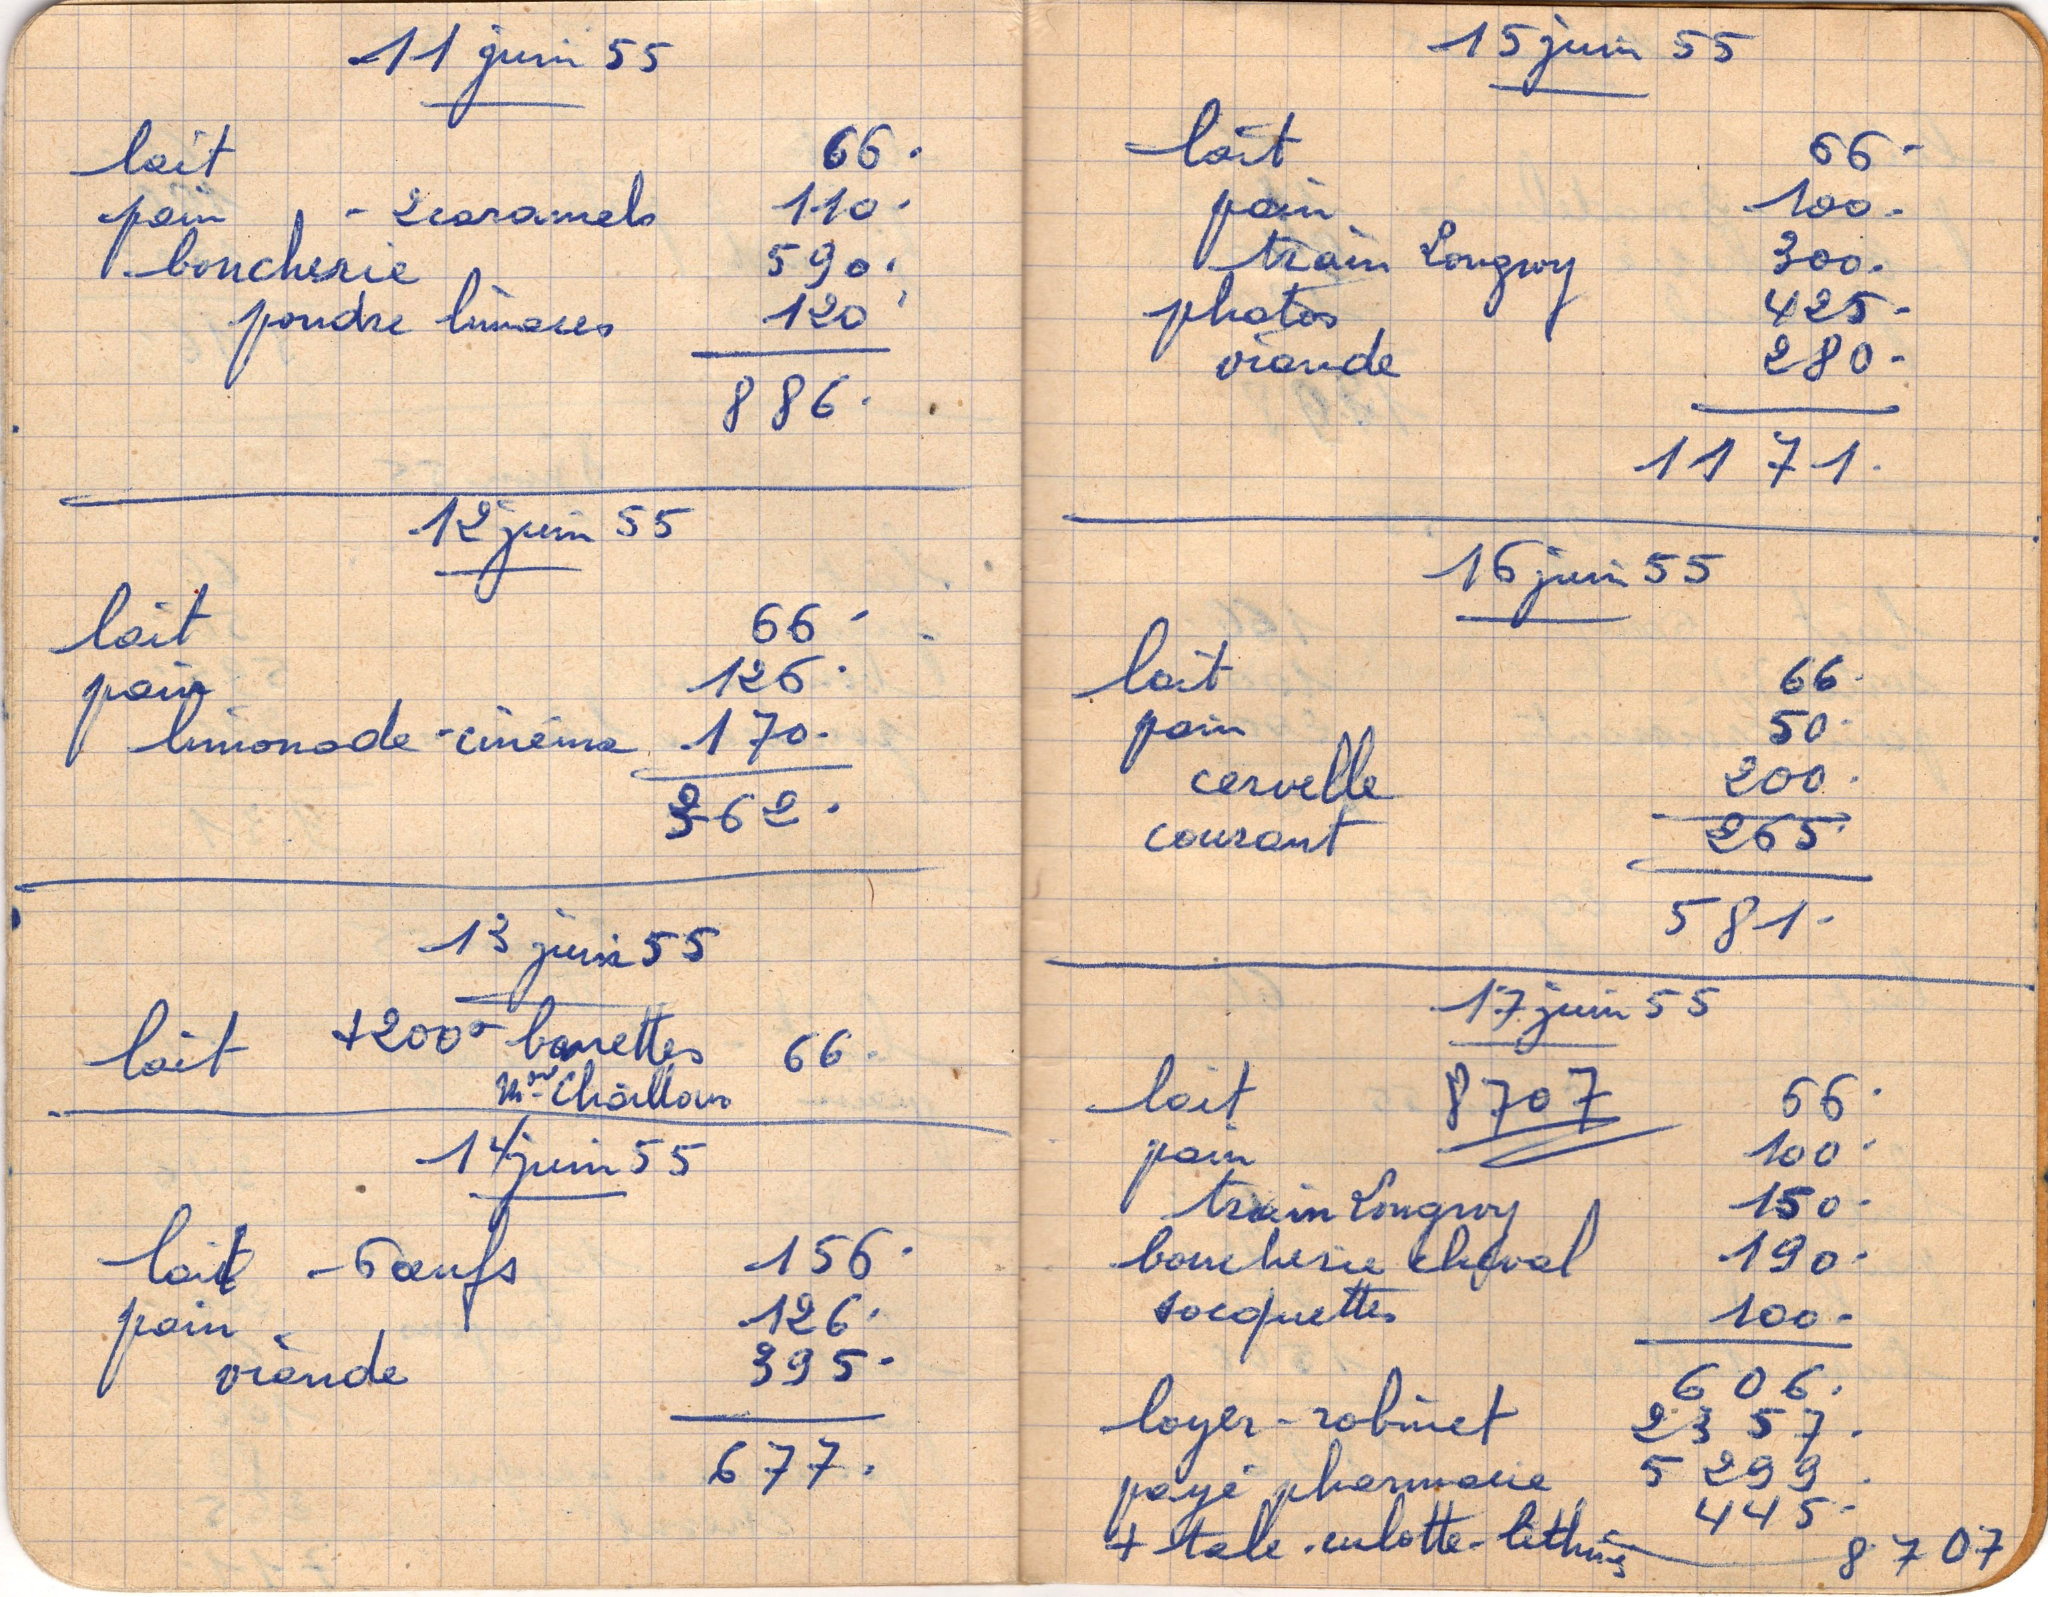 11 juin 55
lait 66.
pain - 2 caramels 110.
boucherie 590.
poudre limaces 120
886.
12 juin 55
lait 66.
pain 126.
limonade-cinéma 170.
362.
13 juin 55
lait +200 barrettes 66.
Mme Chaillou
14 juin 55
lait - 6 œufs 156.
pain 126.
viande 395.
677.
15 juin 55
lait 66.
pain 100.
train Longwy 300.
photos 425.
viande 280.
1171.
16 juin 55
lait 66.
pain 50.
cervelle 200.
courant 265.
581.
17 juin 55
lait 8707 66.
pain 100.
train Longwy 150.
boucherie cheval 190.
socquettes 100.
606.
loyer-robinet 2357.
payé pharmacie 5299.
445.
+ talc-culotte-lithinés 8707